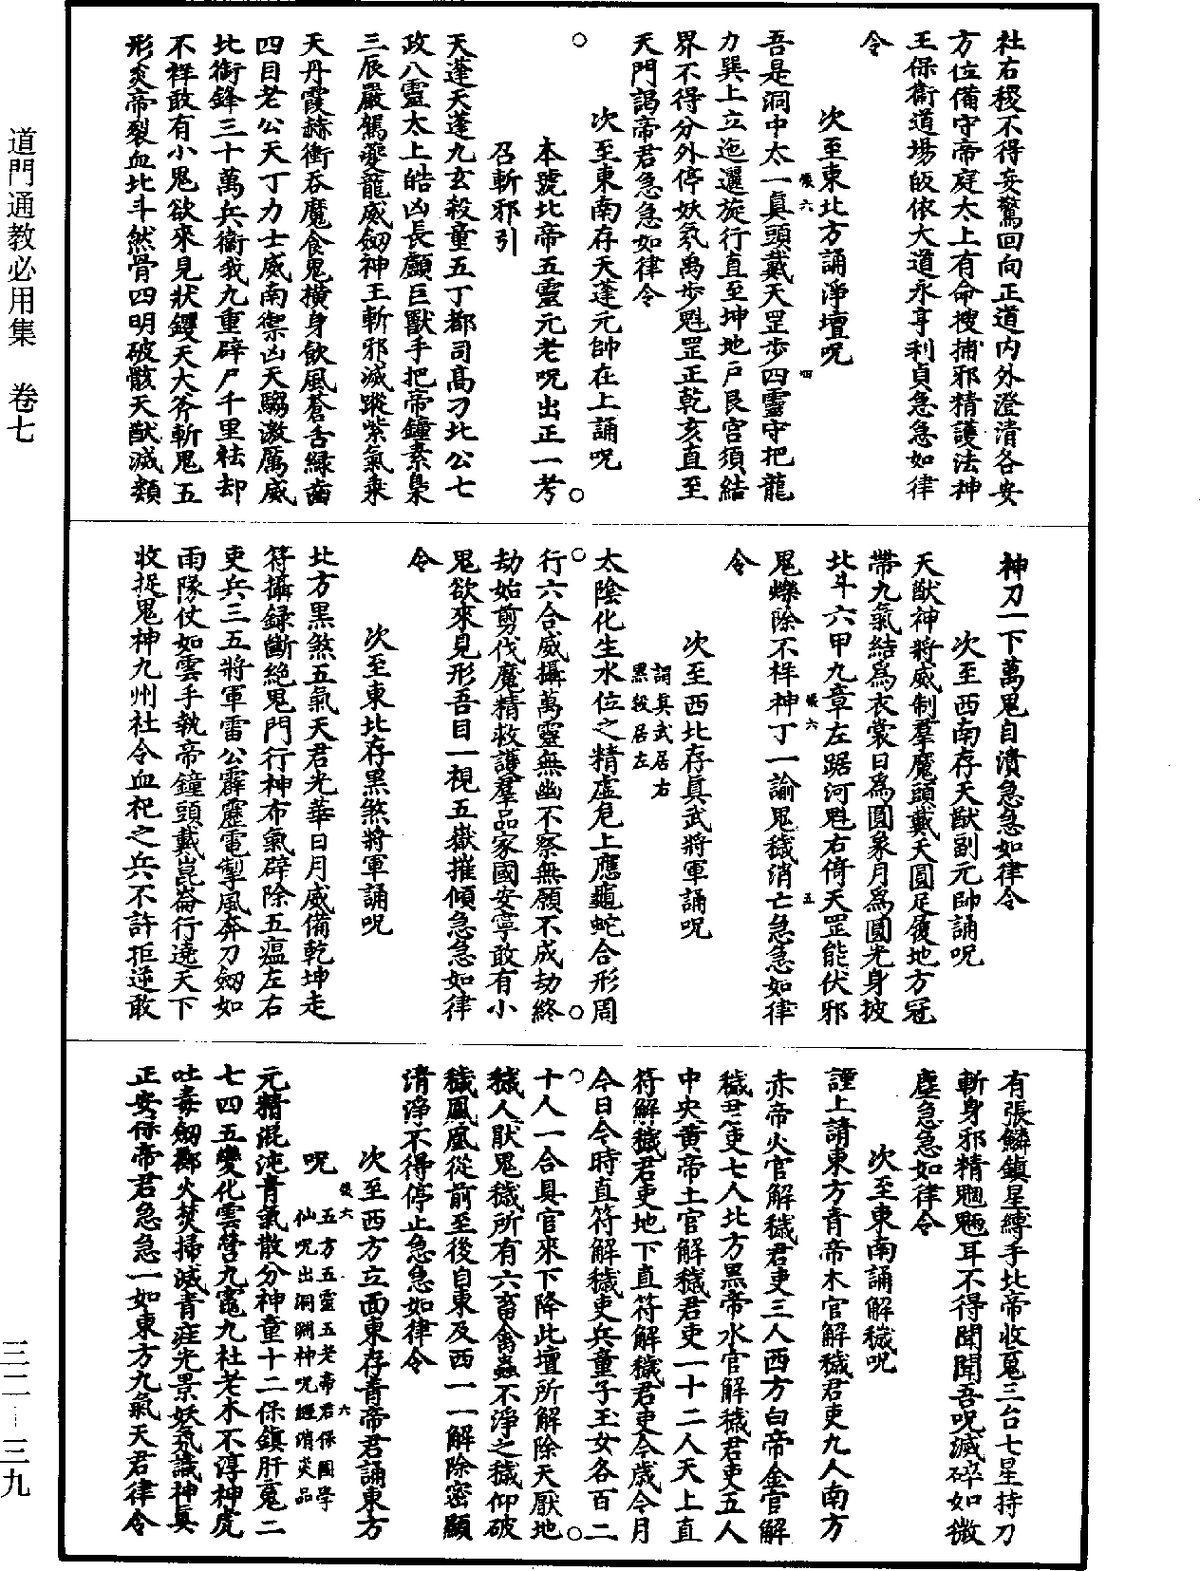 社右稷不得妄驚回向正道內外澄清各安
方位備守帝庭太上有命搜捕邪精護法神
王保衞道場皈依大道永亨利貞急急如律
令
次至東北方誦淨壇呪
吾是洞中太一眞頭戴天罡步四靈守把龍
力巽上立迤邐旋行直至坤地戶艮宮須結
界不得分外停妖氛禹步魁罡正乾亥直至
天門謁帝君急急如律令
次至東南存天蓬元帥在上誦呪
本號北帝五靈元老呪出正一考
召斬邪引
天蓬天蓬九玄殺童五丁都司高刁北公七
政八靈太上皓凶長顱巨獸手把帝鐘素梟
三辰嚴駕夔龍威劒神王斬邪滅蹤紫氣乘
天丹霞赫衝吞魔食鬼橫身飲風蒼舌綠齒
四目老公天丁力士威南禦凶天騶激厲威
北銜鋒三十萬兵衞我九重辟尸千里袪却
不祥敢有小鬼欲來見狀钁天大斧斬鬼五
形炎帝裂血北斗然骨四明破骸天猷滅類
神刀一下萬鬼自潰急急如律令
次至西南存天猷副元帥誦呪
天猷神將威制羣魔頭戴天圓足履地方冠
帶九氣結爲衣裳日爲圓象月爲圓光身披
北斗六甲九章左踞河魁右倚天罡能伏邪
鬼爍除不祥神丁一諭鬼穢消亡急急如律
令
次至西北存眞武將軍誦呪
謂眞武居右
黑殺居左
太陰化生水位之精虛危上應龜蛇合形周
行六合威攝萬靈無幽不察無願不成劫終
劫始剪伐魔精救護羣品家國安寧敢有小
鬼欲來見形吾目一視五嶽摧傾急急如律
令
次至東北存黑煞將軍誦呪
北方黑煞五氣天君光華日月威備乾坤走
符攝録斷絕鬼門行神布氣辟除五瘟左右
吏兵三五將軍雷公霹靂電掣風奔刀劒如
雨隊仗如雲手執帝鐘頭戴崑崙行遶天下
收捉鬼神九州社令血祀之兵不許拒逆敢
有張鱗鎮星縛手北帝收䰟三台七星持刀
斬身邪精魍魎耳不得聞聞吾呪滅碎如微
塵急急如律令
次至東南誦解穢呪
謹上請東方青帝木官解穢君吏九人南方
赤帝火官解穢君吏三人西方白帝金官解
穢君吏七人北方黑帝水官解穢君吏五人
中央黃帝土官解穢君吏一十二人天上直
符解穢君吏地下直符解穢君吏今歲今月
今日今時直符解穢吏兵童子玉女各百二
十人一合具官來下降此壇所解除天厭地
穢人厭鬼穢所有六畜禽蟲不淨之穢仰破
穢鳳凰從前至後自東及西一一解除密顯
清淨不得停止急急如律令
次至西方立面東存青帝君誦東方
呪
五方五靈五老帝君保國學
仙呪出洞淵神呪經消災品
元精混沌青氣散分神童十二保鎮肝䰟二
七四五變化雲營九竈九社老木不淳神虎
吐毒劒擲火焚掃滅青疰光景妖氛識神眞
正安保帝君急急一如東方九氣天君律令
道門通教必用集　卷七
三二—三九